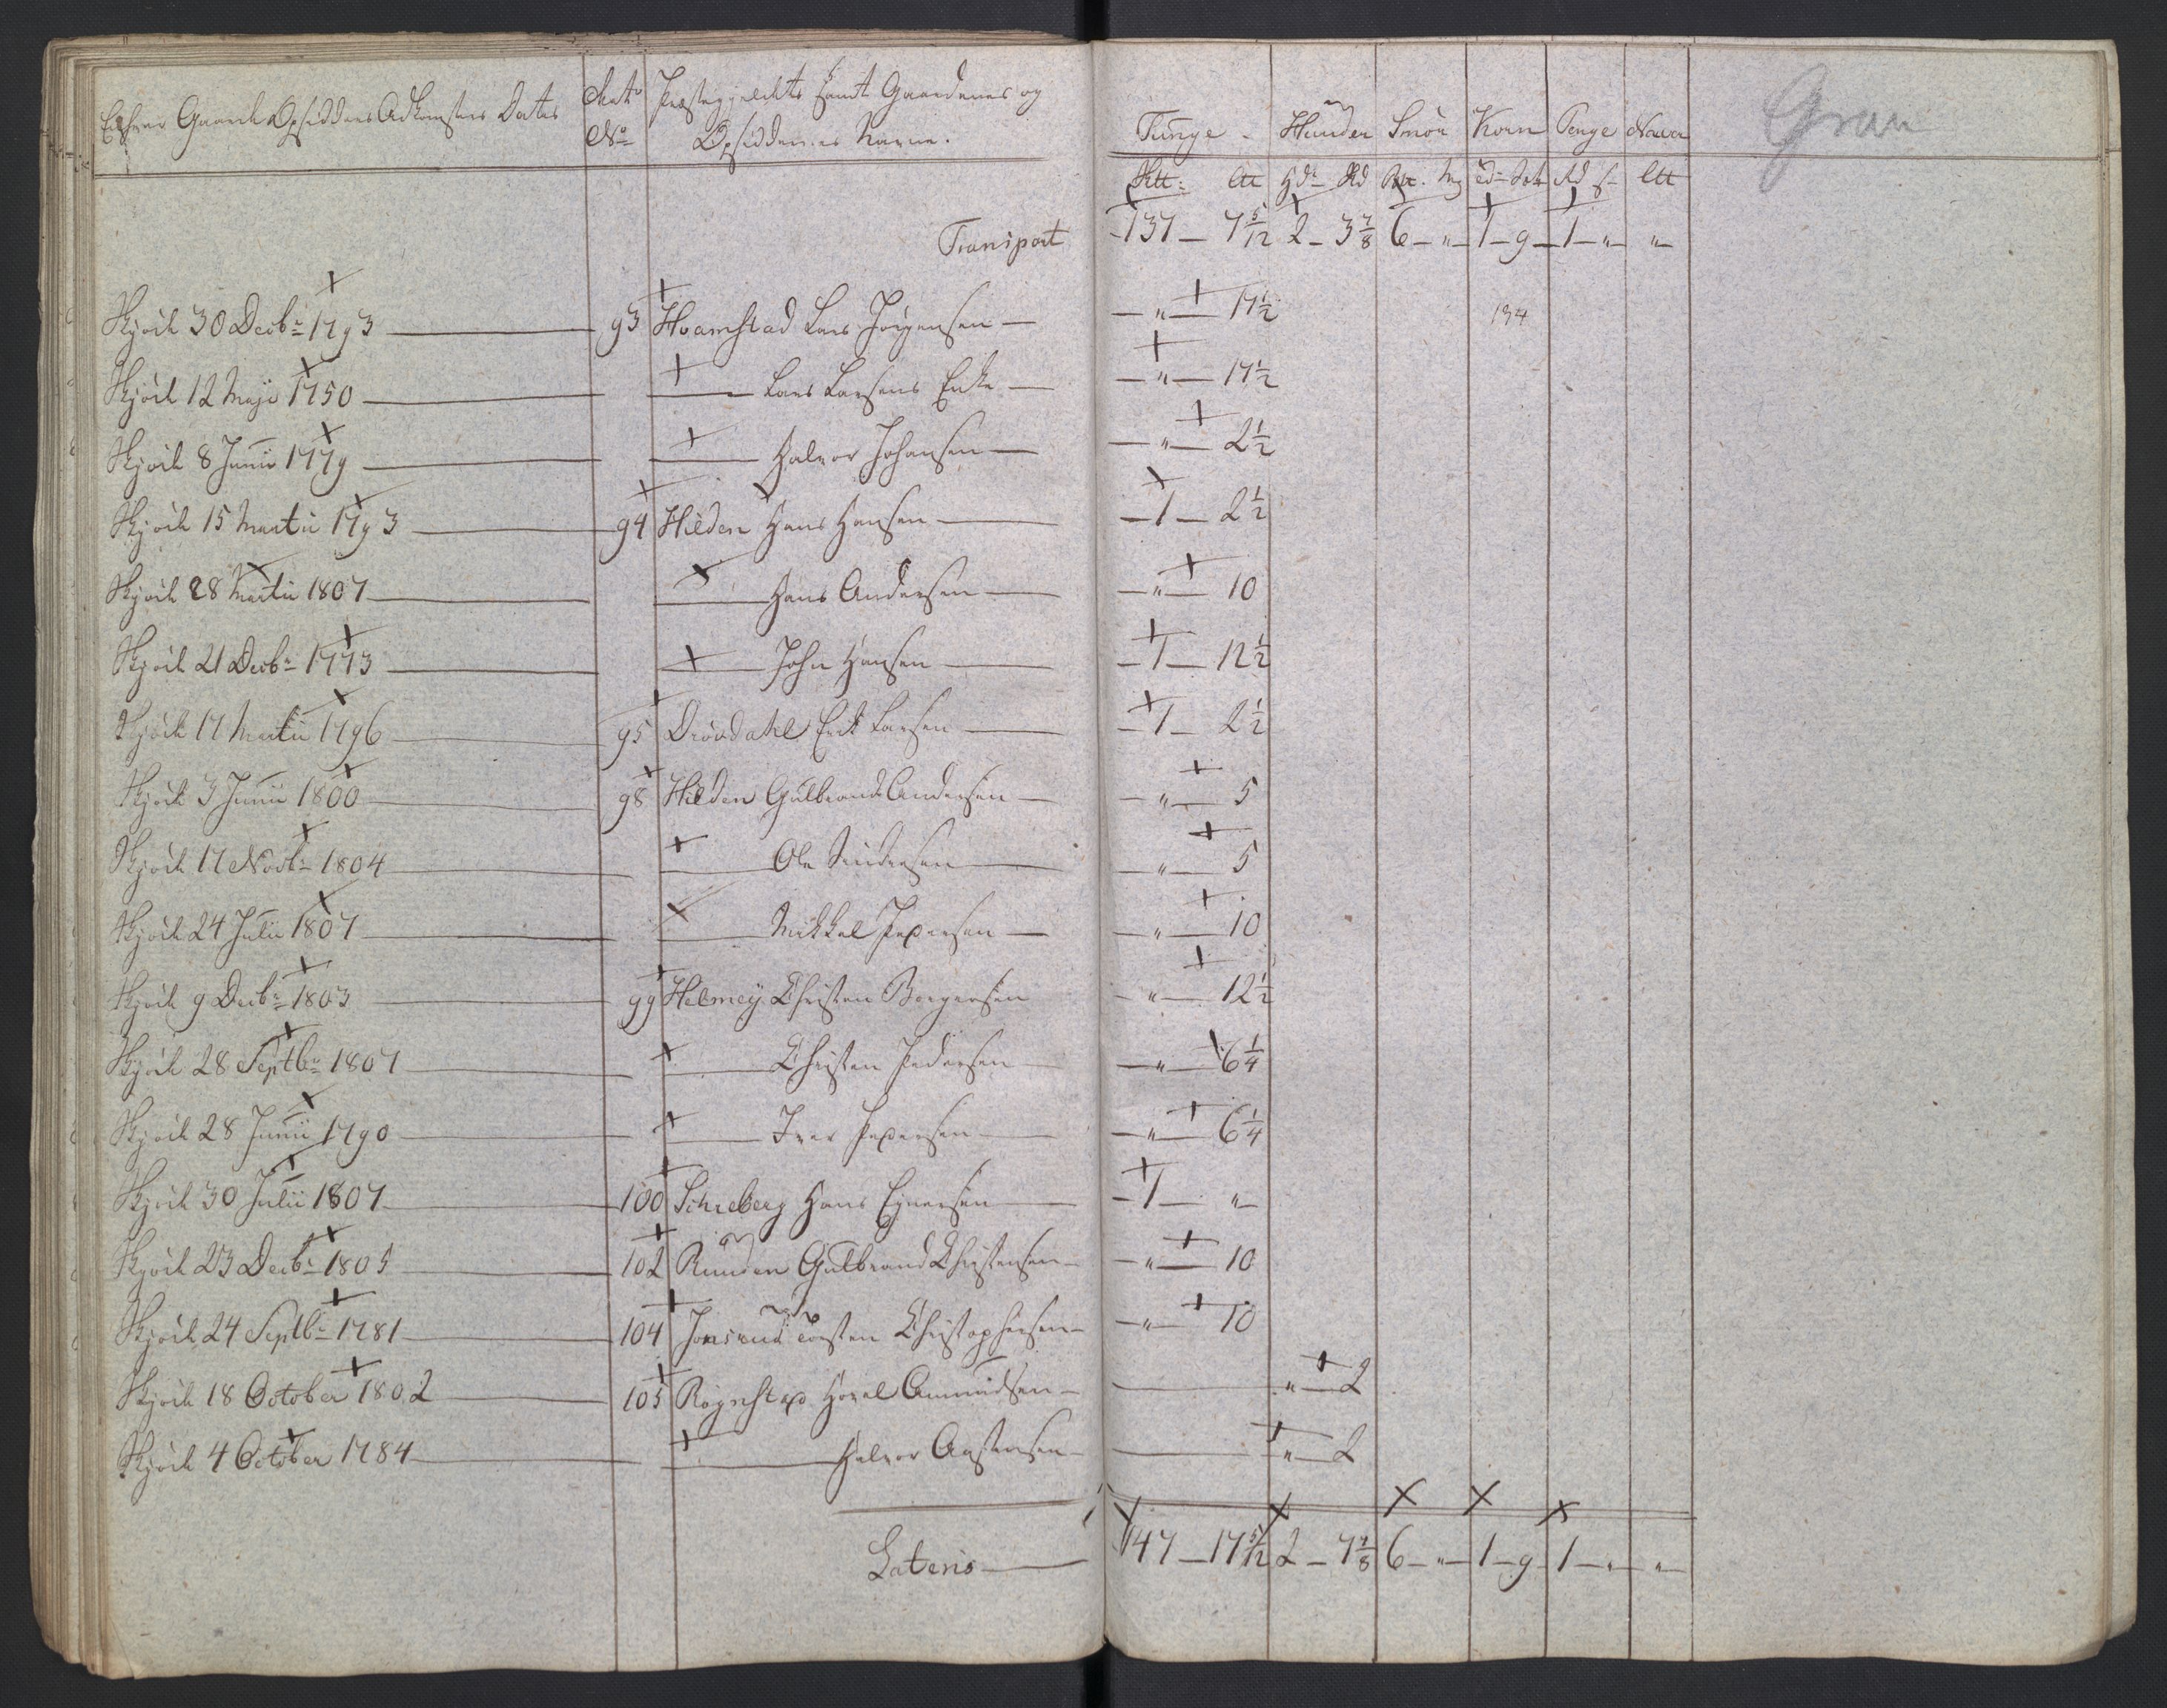 Enhver Gaards Opsidders Adkomsters Dato Matr No Præstegjeldets samt Gaardenes og Opsiddernes Navne. Tunge Huuder Smör Korn Penge Naver Gran
Lttr Hdr Rd Mg Rd ß Ltt
Transport 137 – 7 5/12 2 – 3 7/8 6 – " – 1 – 9 – 1 – " – "
Skjöde 30 Decbr 1793 93 Hvamstad Lars Jörgensen – " – 17½ 134
Skjöde 12 Maji 1750 – Lars Larsens Enke – " – 17½
Skjöde 8 Junii 1779 – Halvor Johansen – " – 2½
Skjöde 15 Martii 1793 94 Hilden Hans Hansen – 1 – 2½
Skjöde 28 Martii 1807 – Hans Andersen – " – 10
Skjöde 21 Decbr 1773 – John Hansen – 1 – 12½
Skjöde 17 Martii 1796 95 Drövdahl Erik Larsen – 1 – 2½
Skjöde 3 Junii 1800 98 Hilden Gulbrand Andersen – " – 5
Skjöde 17 Novbr 1804 – Ole – " – 5
Skjöde 24 Julii 1807 – Mikkel Pedersen – " – 10
Skjöde 9 Decbr 1803 99 Helmey Christen Borgersen – " – 12½
Skjöde 28 Septbr 1807 – Christen Pedersen – " – 6¼
Skjöde 28 Junii 1790 – Iver Pedersen – " – 6¼
Skjöde 30 Julii 1807 100 Schieberg Hans Eynersen – 1 – "
Skjöde 23 Decbr 1805 102 Ruuden Gulbrand Christensen – " – 10
Skjöde 24 Septbr 1781 104 Jonsrud Torsten Christophersen – " – 10
Skjöde 18 October 1802 105 Rognstad Hovel Amundsen – " – 2
Skjöde 4 October 1784 – Halvor Aastensen – " – 2
Lateris – 147 – 17 5/12 2 – 7 7/8 6 – " – 1 – 9 – 1 – " – "